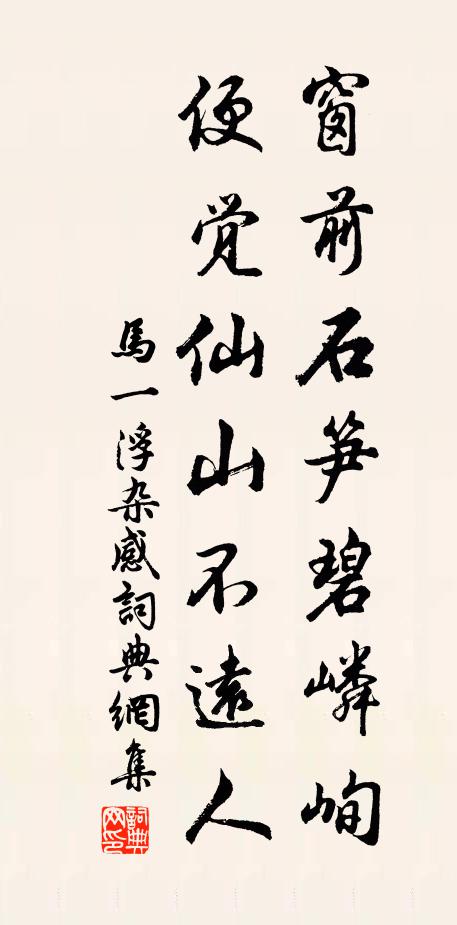 窗前石笋碧嶙峋
便觉仙山不遠人
馬一浮杂感詞典網集
詞典网印